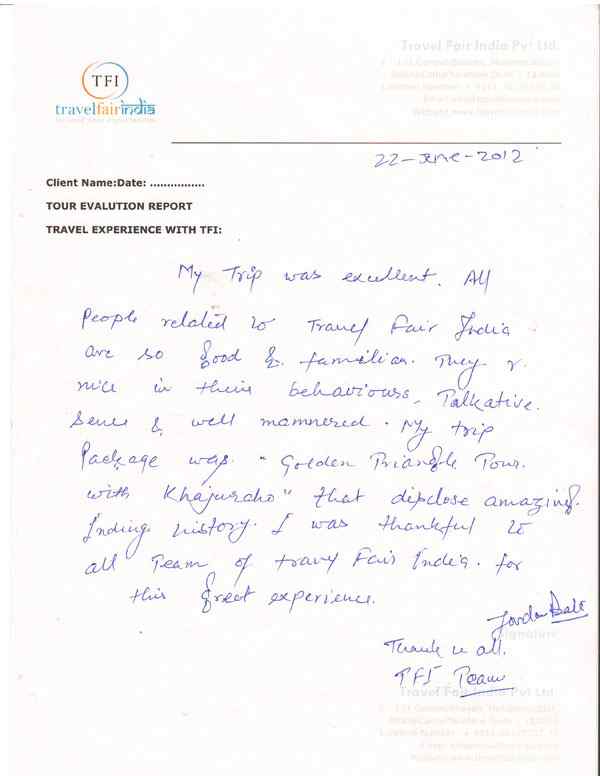 Travel Fair India Pvt Ltd.
TFI
travelfairindia
22-June-2012
Client Name:Date: ...............
TOUR EVALUTION REPORT
TRAVEL EXPERIENCE WITH TFI:
My Trip was excellent. All
People related to Travel Fair India
are so good & familiar. They r
nice in their behaviours, Talkative
Sense & well mannered. My trip
Package was "Golden Triangle Tour
with Khajuraho" that disclose amazing
Inding history. I was thankful to
all Team of travel Fair India for
this great experience.
Jordan
Signature
Thank u all.
TFI Team
Travel Fair India Pvt Ltd.